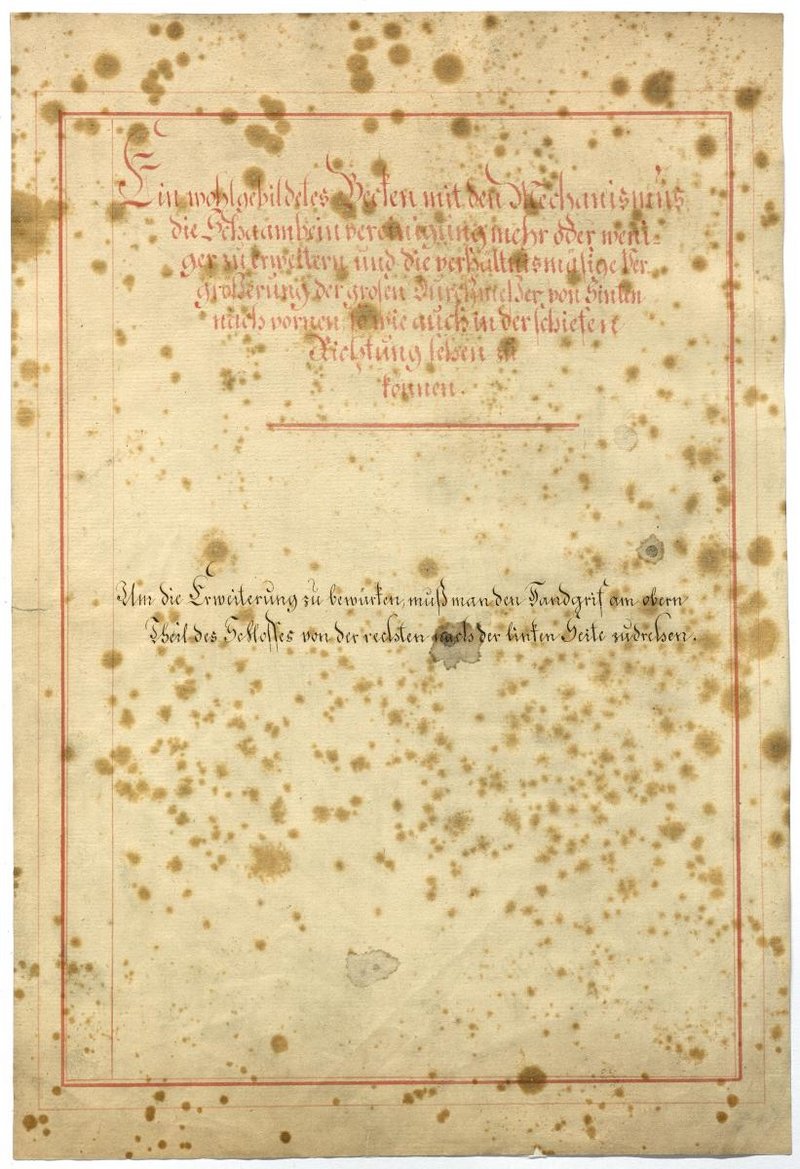 Ein wohlgebildetes Becken mit den Mechanismus
die Schaambein vereinigung mehr oder weni-
ger zu erweitern und die verhältnismäsige Ver
größerung der grosen Durchmesser von hinten
nach vornen, so wie auch in der schiefen
Richtung sehen zu
können.
Um die Erweiterung zu bewürken, muß man den Handgrif am obern
Theil des Schlosses von der rechten nach der linken Seite zudrehen.